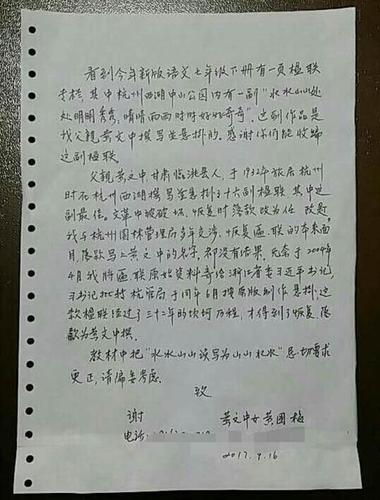 看到今年新版语文七年级下册有一页楹联
专栏，其中杭州西湖中山公园内有一副“水水山山处
处明明秀秀，晴晴雨雨时时好好奇奇”。这副作品是
我父亲黄文中撰写并悬挂的，感谢你们能收编
这副楹联。
父亲黄文中甘肃临洮县人，于1932年旅居杭州
时在杭州西湖撰写并悬挂了十六副楹联，其中这
副最佳。文革中被破坏，恢复时落款改为佚
我与杭州园林管理局多年交涉，恢复匾联的本来面
目，落款写上黄文中的名字，却没有结果。无奈于2004年
4月我将匾联原始资料寄给浙江省委习近平书记，
习书记批转杭管局于同年6月按原版制作悬挂，这
款楹联经过了三十二年的坎坷历程，才得到了恢复，落
款为黄文中撰。
教材中把“水水山山误写为山山水水”恳切要求
更正，请编委考虑。
致
谢 黄文中女黄国梅
电话：
2017.9.16